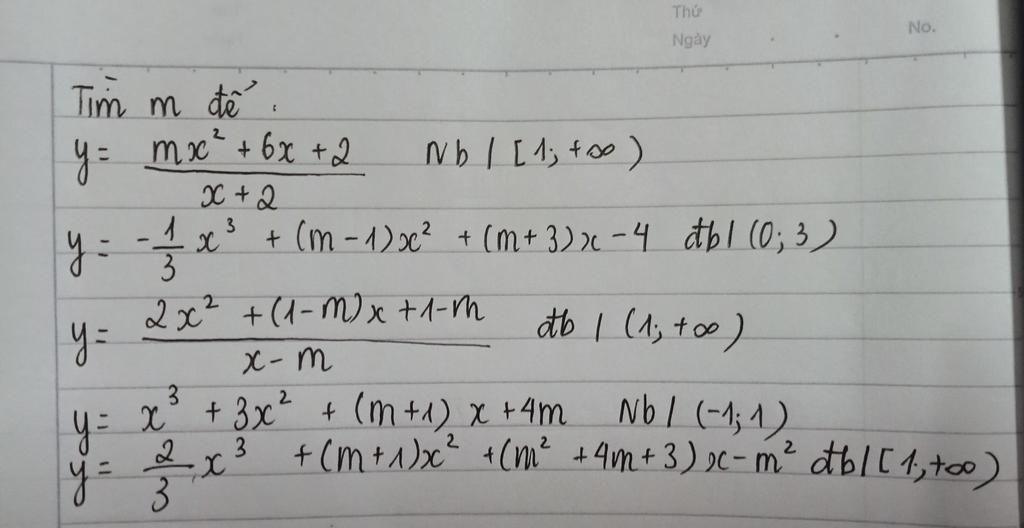 Thứ
Ngày
No.
Tìm m để.
y = \frac{mx² + 6x + 2}{x + 2} Nb / [1; +∞)
y = -\frac{1}{3}x³ + (m - 1)x² + (m + 3)x - 4 đb / (0; 3)
y = \frac{2x² + (1 - m)x + 1 - m}{x - m} đb / (1; +∞)
y = x³ + 3x² + (m + 1)x + 4m Nb / (-1; 1)
y = \frac{2}{3}x³ + (m + 1)x² + (m² + 4m + 3)x - m² đb / [1; +∞)